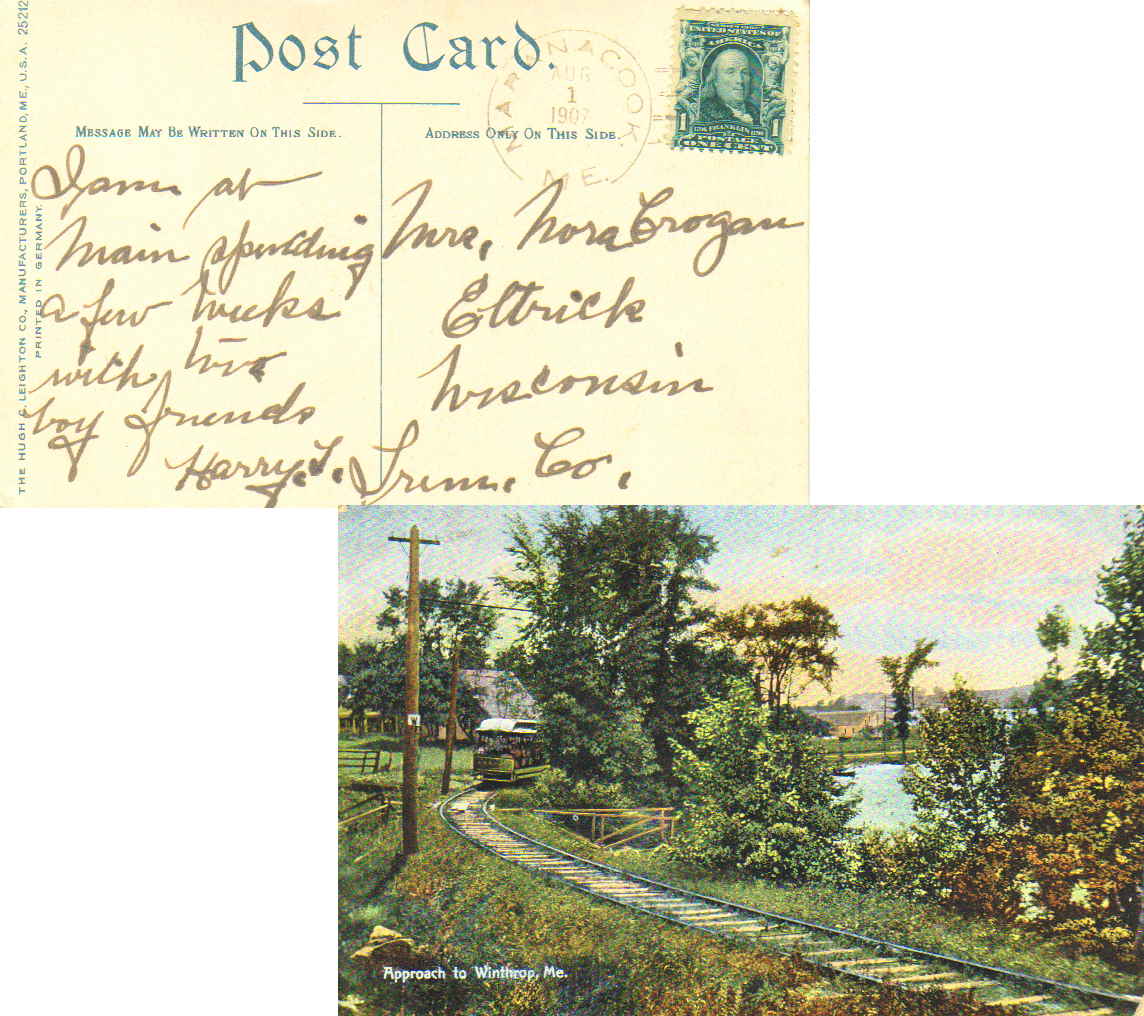 Post Card.
MARANACOOK, ME.
AUG
1
1907
UNITED STATES OF
AMERICA
1706 FRANKLIN 1790
POSTAGE
1 ONE CENT 1
MESSAGE MAY BE WRITTEN ON THIS SIDE.
ADDRESS ONLY ON THIS SIDE.
THE HUGH C. LEIGHTON CO., MANUFACTURERS, PORTLAND, ME., U.S.A. 25212
PRINTED IN GERMANY.
I am at
Main spending
a few weeks
with two
boy friends
Harry. T.
Mrs. Nora Crogan
Ettrick
Wisconsin
Trem. Co.
Approach to Winthrop, Me.